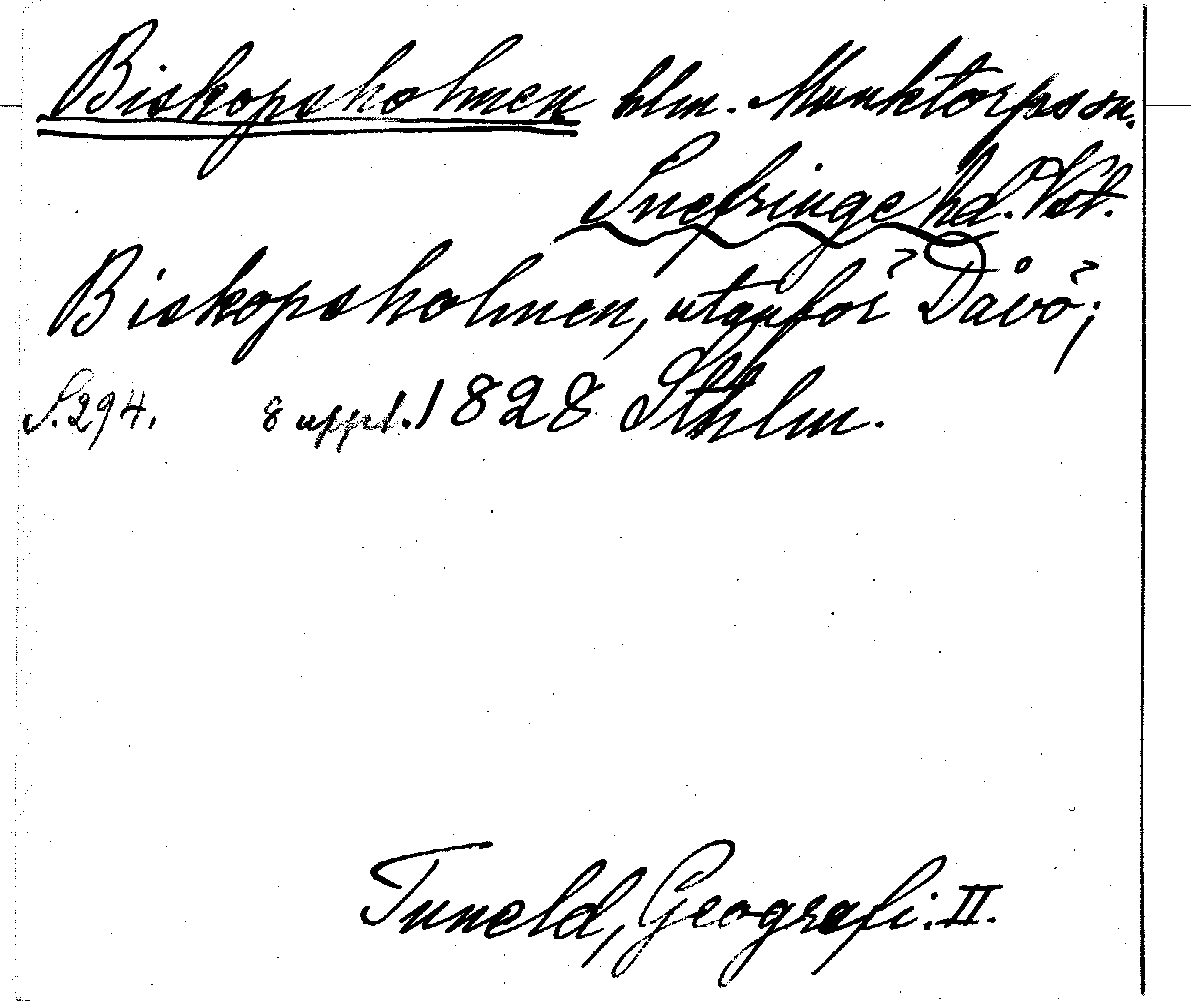 Biskopsholmen hlm. Munktorps sn.
Snefringe hd. Vstl.
Biskopsholmen, utanför Dåvö;
S. 294. 8 uppl. 1828 Sthlm.
Tuneld, Geografi. II.